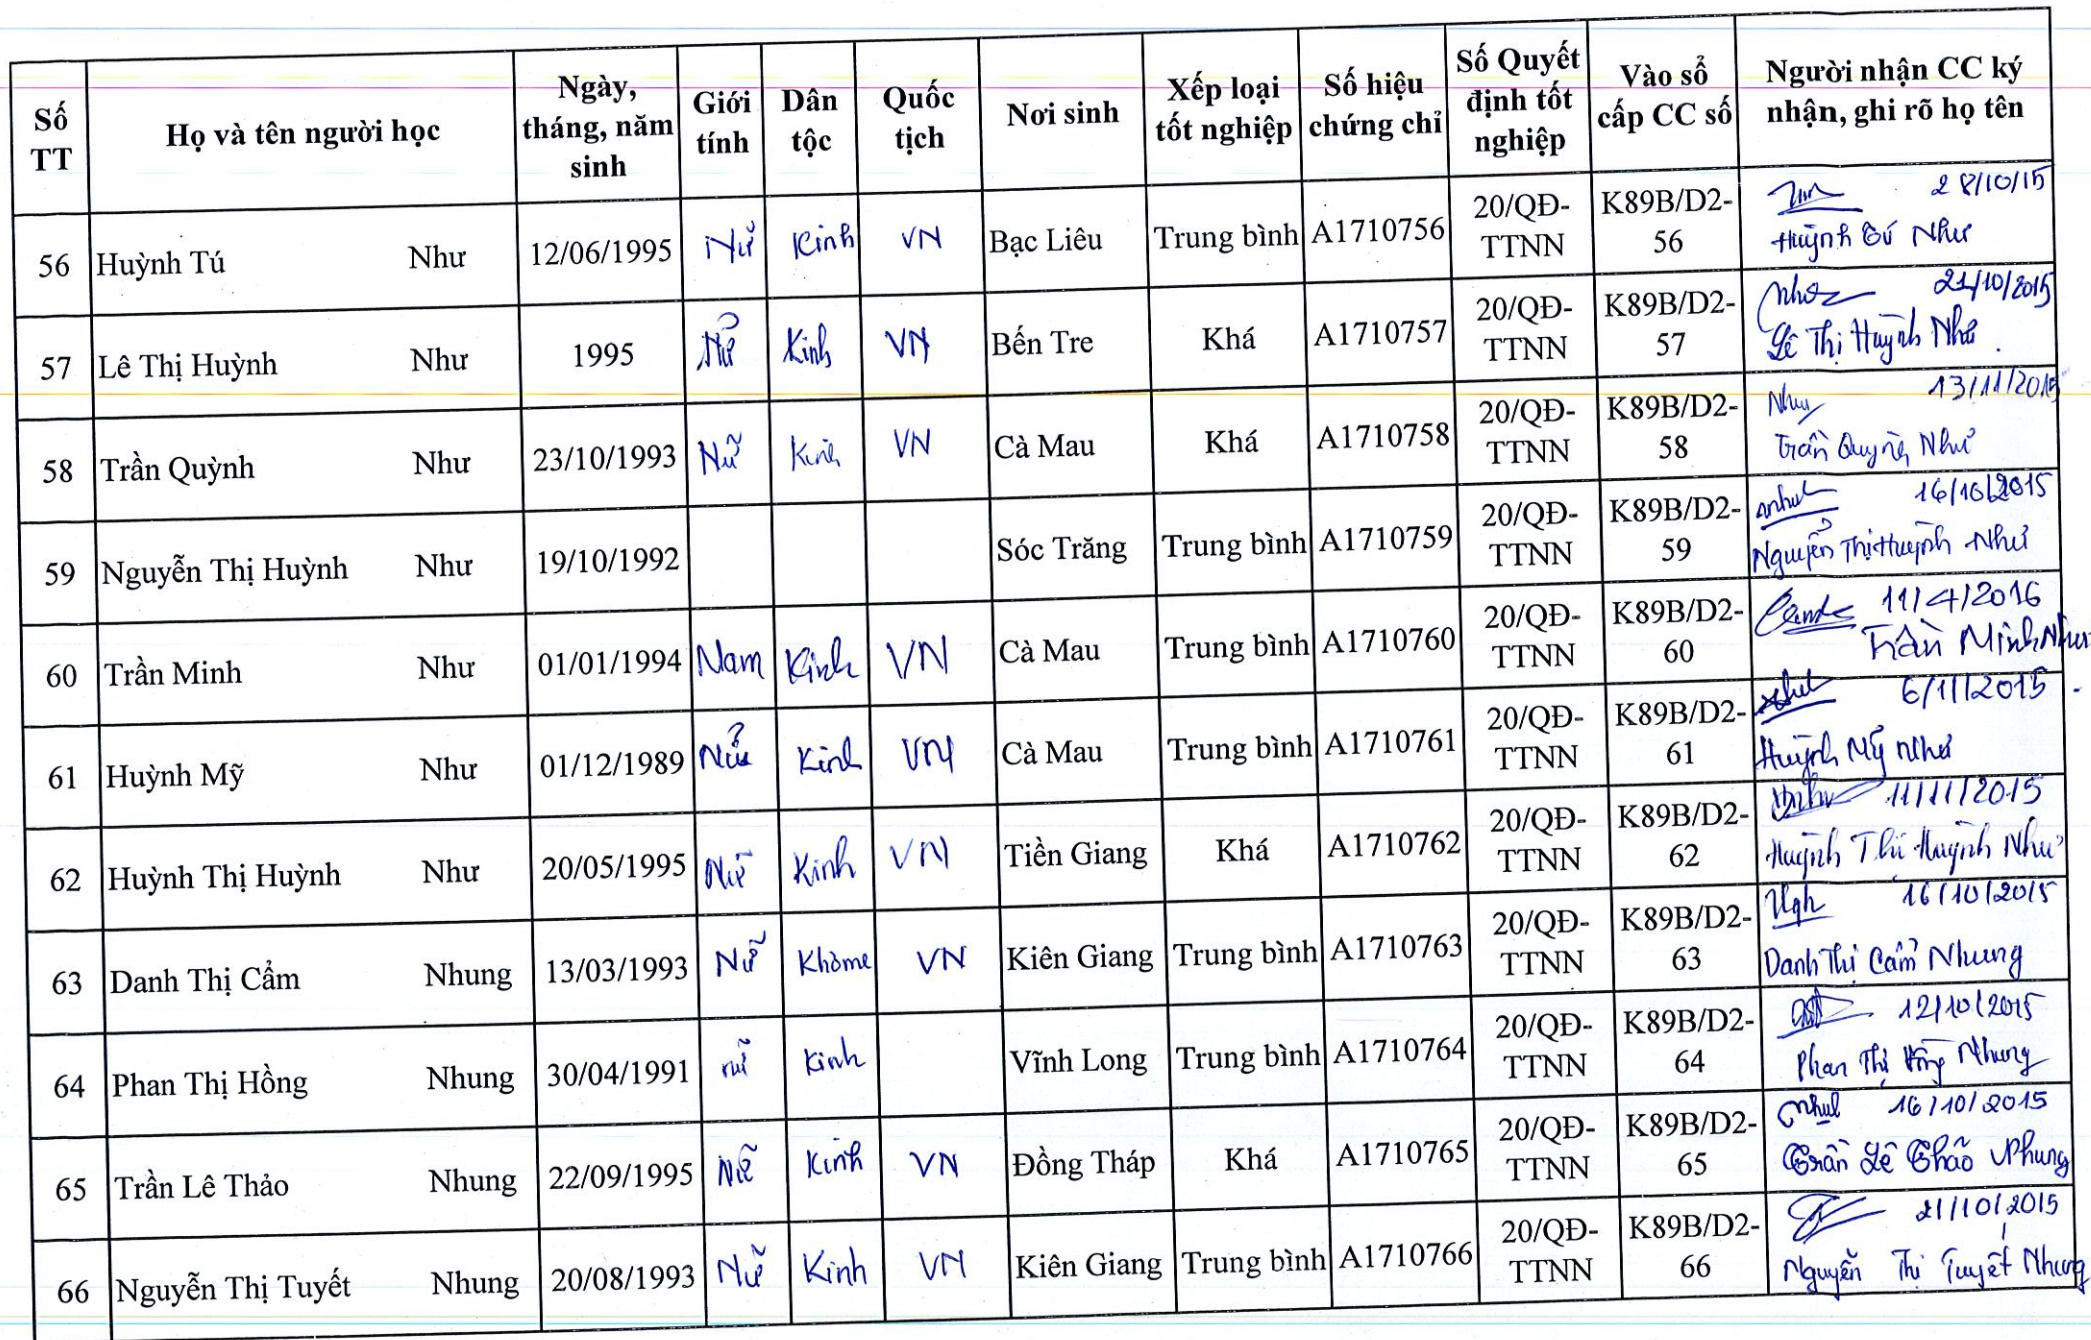 Số TT | Họ và tên người học | Ngày, tháng, năm sinh | Giới tính | Dân tộc | Quốc tịch | Nơi sinh | Xếp loại tốt nghiệp | Số hiệu chứng chỉ | Số Quyết định tốt nghiệp | Vào sổ cấp CC số | Người nhận CC ký nhận, ghi rõ họ tên
56 | Huỳnh Tú Như | 12/06/1995 | Nữ | Kinh | VN | Bạc Liêu | Trung bình | A1710756 | 20/QĐ-TTNN | K89B/D2-56 | 28/10/15 Huỳnh Tú Như
57 | Lê Thị Huỳnh Như | 1995 | Nữ | Kinh | VN | Bến Tre | Khá | A1710757 | 20/QĐ-TTNN | K89B/D2-57 | Như 21/10/2015 Lê Thị Huỳnh Như
58 | Trần Quỳnh Như | 23/10/1993 | Nữ | Kinh | VN | Cà Mau | Khá | A1710758 | 20/QĐ-TTNN | K89B/D2-58 | Như 13/11/2015 Trần Quỳnh Như
59 | Nguyễn Thị Huỳnh Như | 19/10/1992 | | | | Sóc Trăng | Trung bình | A1710759 | 20/QĐ-TTNN | K89B/D2-59 | 16/10/2015 Nguyễn Thị Huỳnh Như
60 | Trần Minh Như | 01/01/1994 | Nam | Kinh | VN | Cà Mau | Trung bình | A1710760 | 20/QĐ-TTNN | K89B/D2-60 | 11/4/2016 Trần Minh Như
61 | Huỳnh Mỹ Như | 01/12/1989 | Nữ | Kinh | VN | Cà Mau | Trung bình | A1710761 | 20/QĐ-TTNN | K89B/D2-61 | 6/11/2015 Huỳnh Mỹ Như
62 | Huỳnh Thị Huỳnh Như | 20/05/1995 | Nữ | Kinh | VN | Tiền Giang | Khá | A1710762 | 20/QĐ-TTNN | K89B/D2-62 | 11/11/2015 Huỳnh Thị Huỳnh Như
63 | Danh Thị Cẩm Nhung | 13/03/1993 | Nữ | Khơme | VN | Kiên Giang | Trung bình | A1710763 | 20/QĐ-TTNN | K89B/D2-63 | 16/10/2015 Danh Thị Cẩm Nhung
64 | Phan Thị Hồng Nhung | 30/04/1991 | nữ | Kinh | | Vĩnh Long | Trung bình | A1710764 | 20/QĐ-TTNN | K89B/D2-64 | 12/10/2015 Phan Thị Hồng Nhung
65 | Trần Lê Thảo Nhung | 22/09/1995 | Nữ | Kinh | VN | Đồng Tháp | Khá | A1710765 | 20/QĐ-TTNN | K89B/D2-65 | 16/10/2015 Trần Lê Thảo Nhung
66 | Nguyễn Thị Tuyết Nhung | 20/08/1993 | Nữ | Kinh | VN | Kiên Giang | Trung bình | A1710766 | 20/QĐ-TTNN | K89B/D2-66 | 21/10/2015 Nguyễn Thị Tuyết Nhung